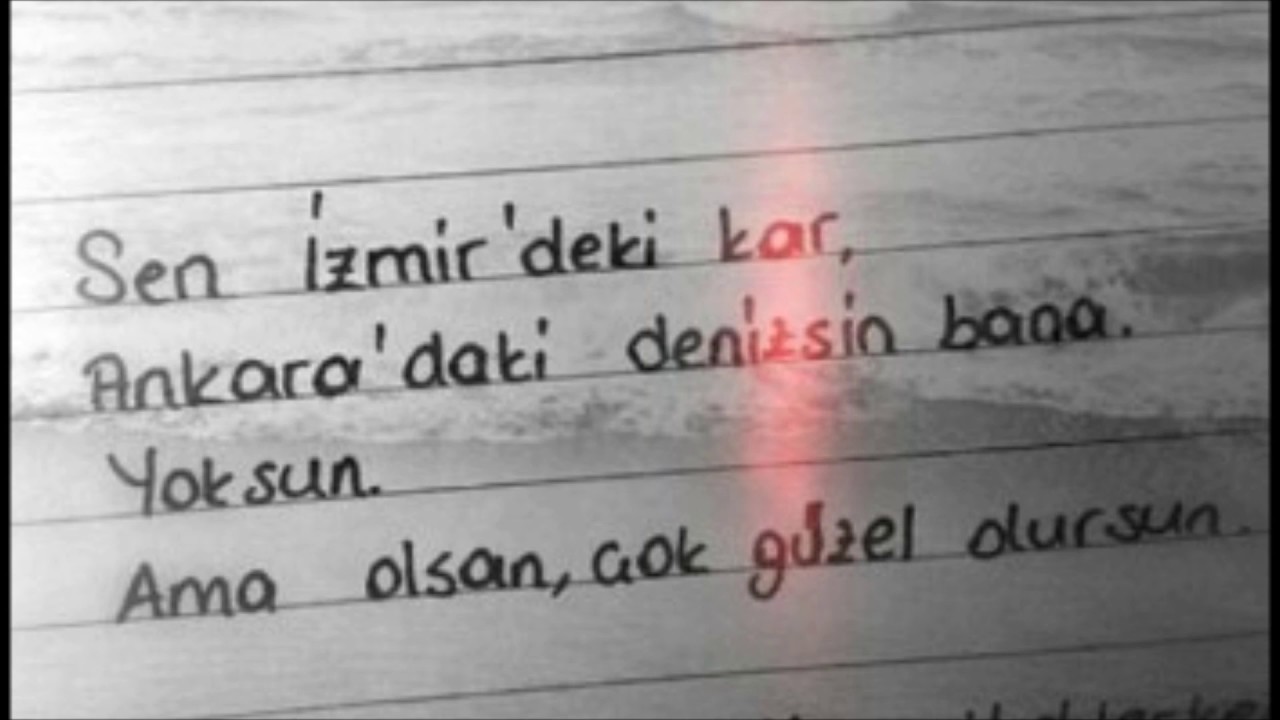 Sen İzmir'deki kar,
Ankara'daki denizsin bana.
Yoksun.
Ama olsan, çok güzel olursun.